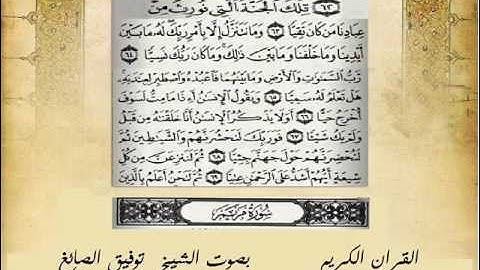 ٦٢ تِلْكَ الْجَنَّةُ الَّتِي نُورِثُ مِنْ
عِبَادِنَا مَن كَانَ تَقِيًّا ٦٣ وَمَا نَتَنَزَّلُ إِلَّا بِأَمْرِ رَبِّكَ لَهُ مَا بَيْنَ
أَيْدِينَا وَمَا خَلْفَنَا وَمَا بَيْنَ ذَٰلِكَ وَمَا كَانَ رَبُّكَ نَسِيًّا ٦٤
رَّبُّ السَّمَٰوَٰتِ وَالْأَرْضِ وَمَا بَيْنَهُمَا فَاعْبُدْهُ وَاصْطَبِرْ لِعِبَٰدَتِهِ
هَلْ تَعْلَمُ لَهُ سَمِيًّا ٦٥ وَيَقُولُ الْإِنسَٰنُ أَءِذَا مَا مِتُّ لَسَوْفَ
أُخْرَجُ حَيًّا ٦٦ أَوَلَا يَذْكُرُ الْإِنسَٰنُ أَنَّا خَلَقْنَٰهُ مِن قَبْلُ
وَلَمْ يَكُ شَيْئًا ٦٧ فَوَرَبِّكَ لَنَحْشُرَنَّهُمْ وَالشَّيَٰطِينَ ثُمَّ
لَنُحْضِرَنَّهُمْ حَوْلَ جَهَنَّمَ جِثِيًّا ٦٨ ثُمَّ لَنَنزِعَنَّ مِن كُلِّ
شِيعَةٍ أَيُّهُمْ أَشَدُّ عَلَى الرَّحْمَٰنِ عِتِيًّا ٦٩ ثُمَّ لَنَحْنُ أَعْلَمُ بِالَّذِينَ
سُورَةُ مَرْيَمَ
القران الكريم بصوت الشيخ توفيق الصائغ